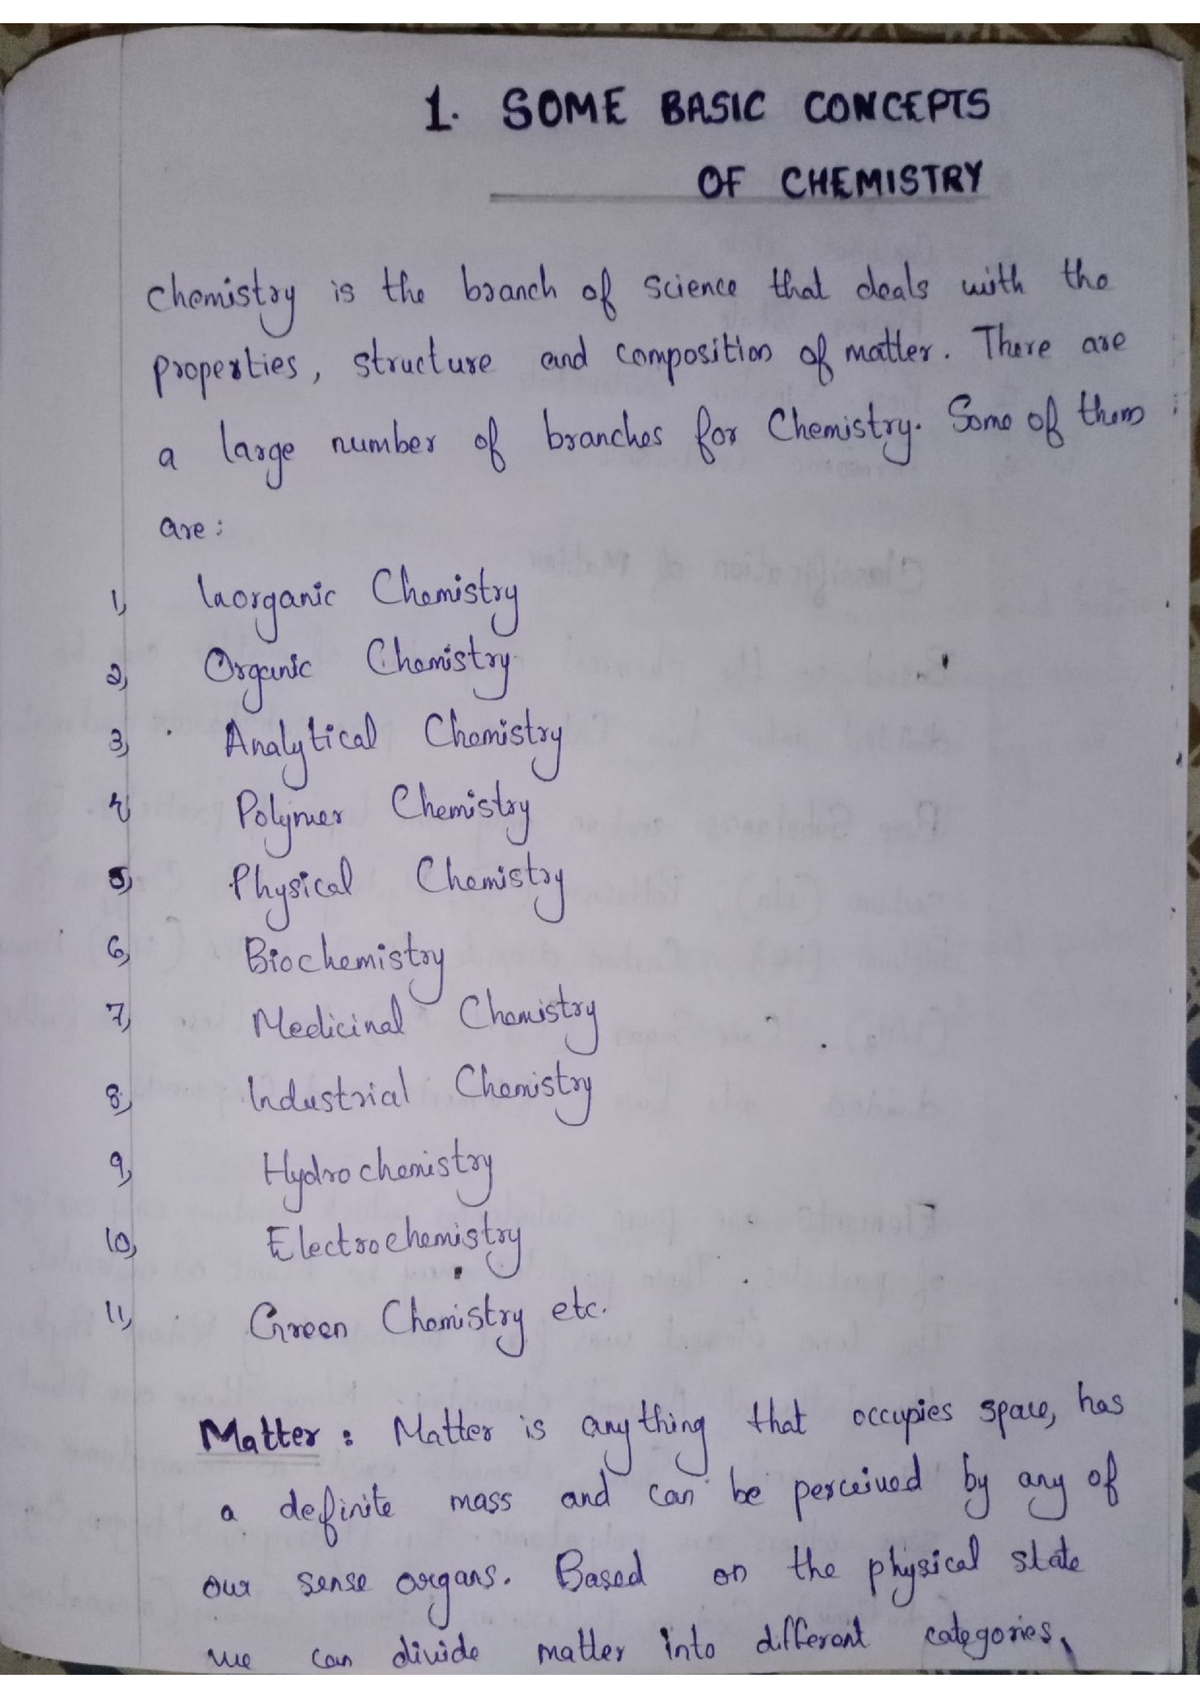 1. SOME BASIC CONCEPTS
OF CHEMISTRY
Chemistry is the branch of science that deals with the
properties, structure and composition of matter. There are
a large number of branches for Chemistry. Some of them
are:
1, Inorganic Chemistry
2, Organic Chemistry
3, Analytical Chemistry
4, Polymer Chemistry
5, Physical Chemistry
6, Biochemistry
7, Medicinal Chemistry
8, Industrial Chemistry
9, Hydrochemistry
10, Electrochemistry
11, Green Chemistry etc.
Matter : Matter is anything that occupies space, has
a definite mass and can be perceived by any of
our sense organs. Based on the physical state
we can divide matter into different categories,